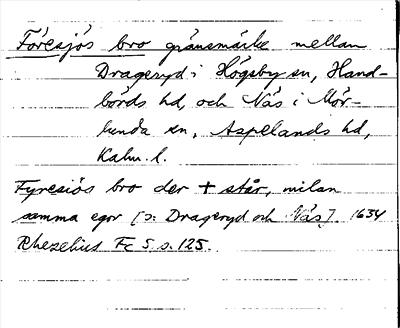 Föresjös bro gränsmärke mellan
Drageryd i Högsby sn, Hand-
börds hd, och Näs i Mör-
lunda sn, Aspelands hd,
Kalm. l.
Fyresiös bro der + står, milan
samma egor [ɔ: Drageryd och Näs]. 1634
Rhezelius Fc 5 s. 125.